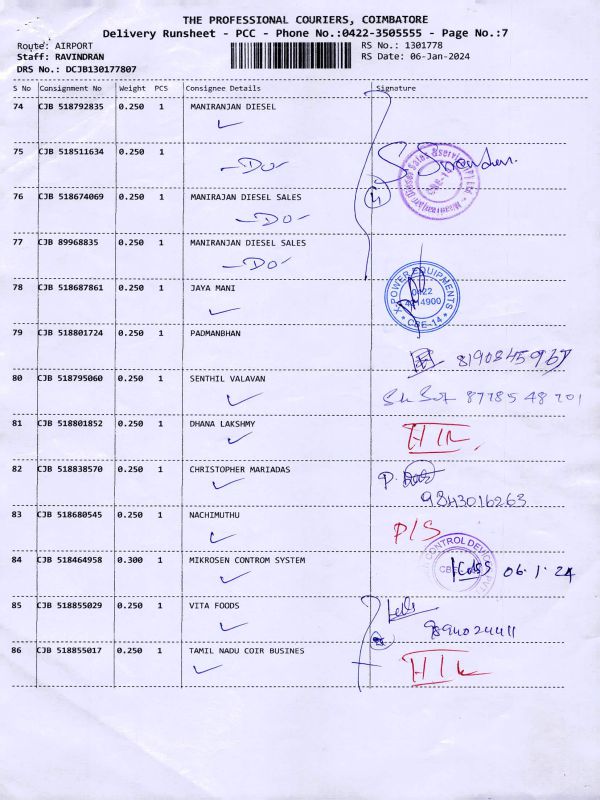 THE PROFESSIONAL COURIERS, COIMBATORE
Delivery Runsheet - PCC - Phone No.:0422-3505555 - Page No.:7
Route: AIRPORT RS No.: 1301778
Staff: RAVINDRAN RS Date: 06-Jan-2024
DRS No.: DCJB130177807
S No Consignment No Weight PCS Consignee Details Signature
74 CJB 518792835 0.250 1 MANIRANJAN DIESEL
75 CJB 518511634 0.250 1
-Do-
76 CJB 518674069 0.250 1 MANIRAJAN DIESEL SALES
-Do-
77 CJB 89968835 0.250 1 MANIRANJAN DIESEL SALES
-Do-
78 CJB 518687861 0.250 1 JAYA MANI
X-POWER EQUIPMENTS
0422
CBE-14
79 CJB 518801724 0.250 1 PADMANBHAN
80 CJB 518795060 0.250 1 SENTHIL VALAVAN
87785 48701
81 CJB 518801852 0.250 1 DHANA LAKSHMY
82 CJB 518838570 0.250 1 CHRISTOPHER MARIADAS
9843016263
83 CJB 518680545 0.250 1 NACHIMUTHU
P/S
84 CJB 518464958 0.300 1 MIKROSEN CONTROM SYSTEM
CONTROL DEVICES
06.1.24
85 CJB 518855029 0.250 1 VITA FOODS
9894024411
86 CJB 518855017 0.250 1 TAMIL NADU COIR BUSINES